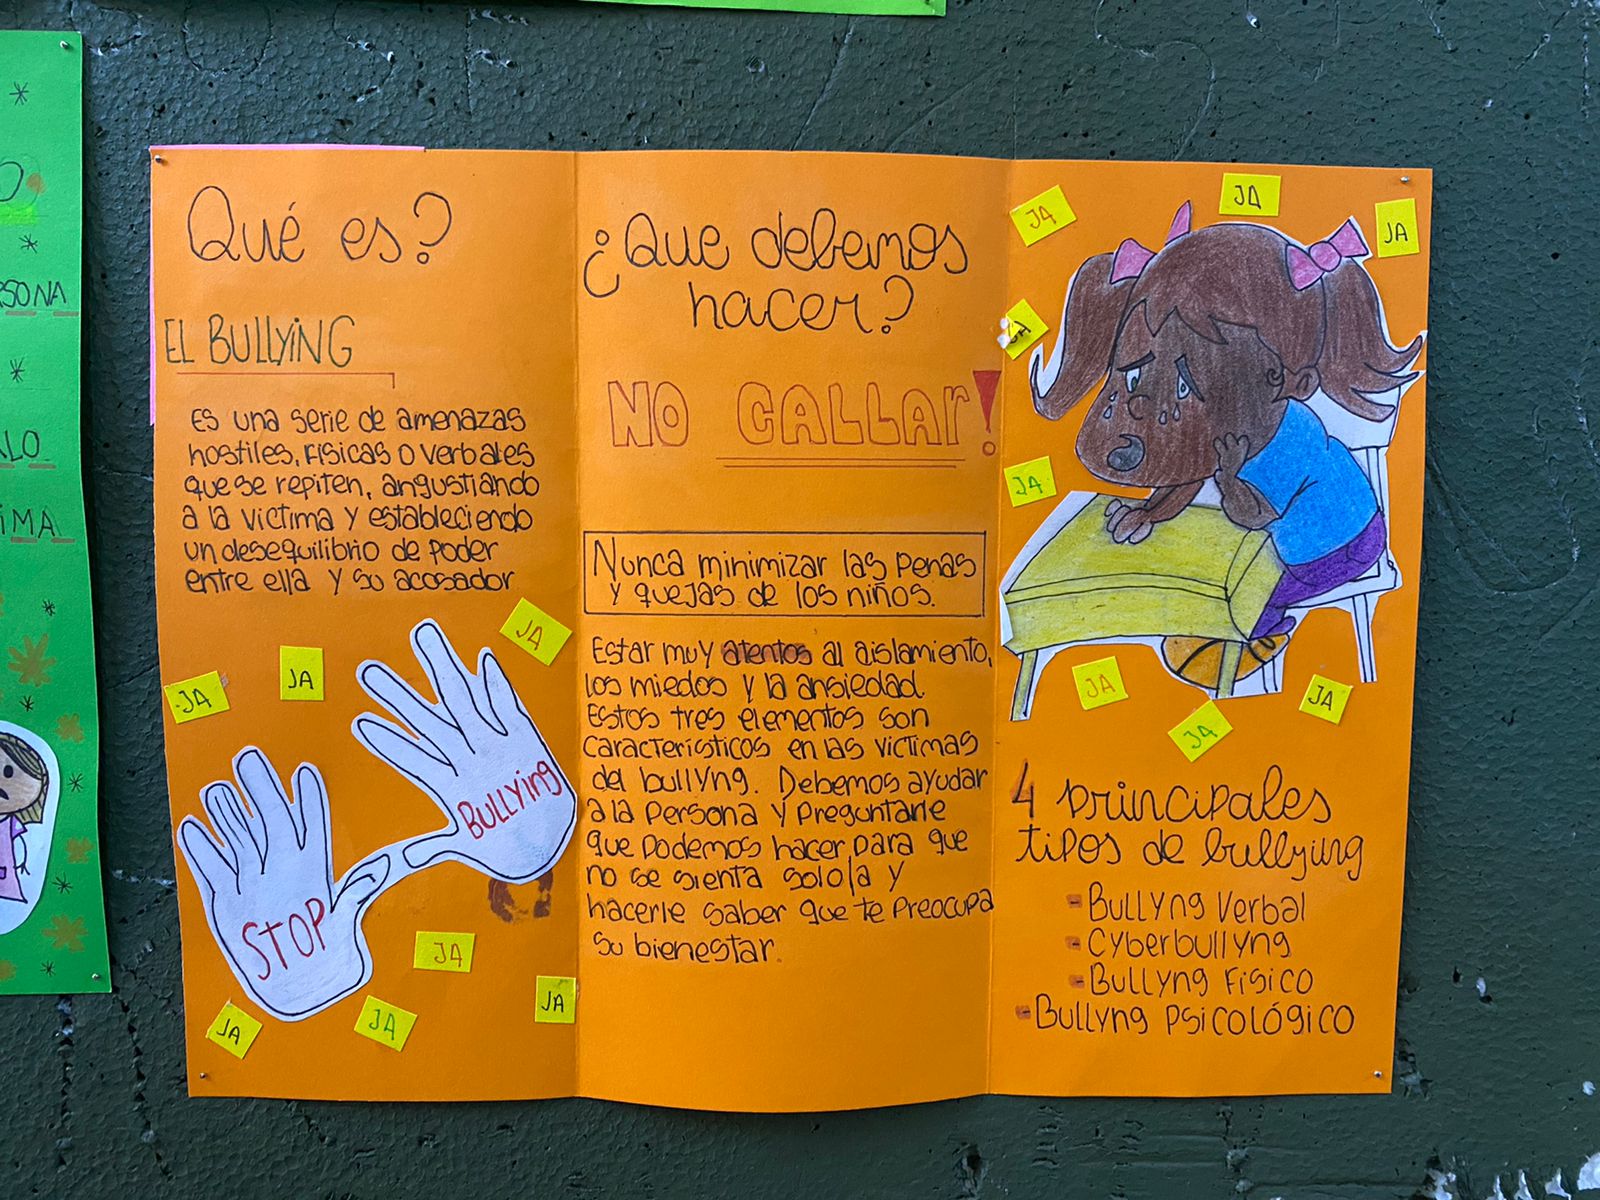 O
SONA
LO
IMA
Qué es?
EL BULLYING
Es una serie de amenazas
hostiles, físicas o verbales
que se repiten, angustiando
a la victima y estableciendo
un desequilibrio de poder
entre ella y su acosador
JA
JA
JA
BULLYing
STOP
JA
JA
JA
JA
¿Que debemos
hacer?
NO CALLAr!
Nunca minimizar las penas
y quejas de los niños.
Estar muy atentos al aislamiento,
los miedos y la ansiedad.
Estos tres elementos son
característicos en las victimas
del bullyng. Debemos ayudar
a la persona y preguntarle
que podemos hacer para que
no se sienta solo/a y
hacerle saber que te preocupa
su bienestar.
JA
JA
JA
JA
JA
JA
JA
JA
4 principales
tipos de bullyng
- Bullyng verbal
- Cyberbullyng
- Bullyng Fisico
- Bullyng psicológico